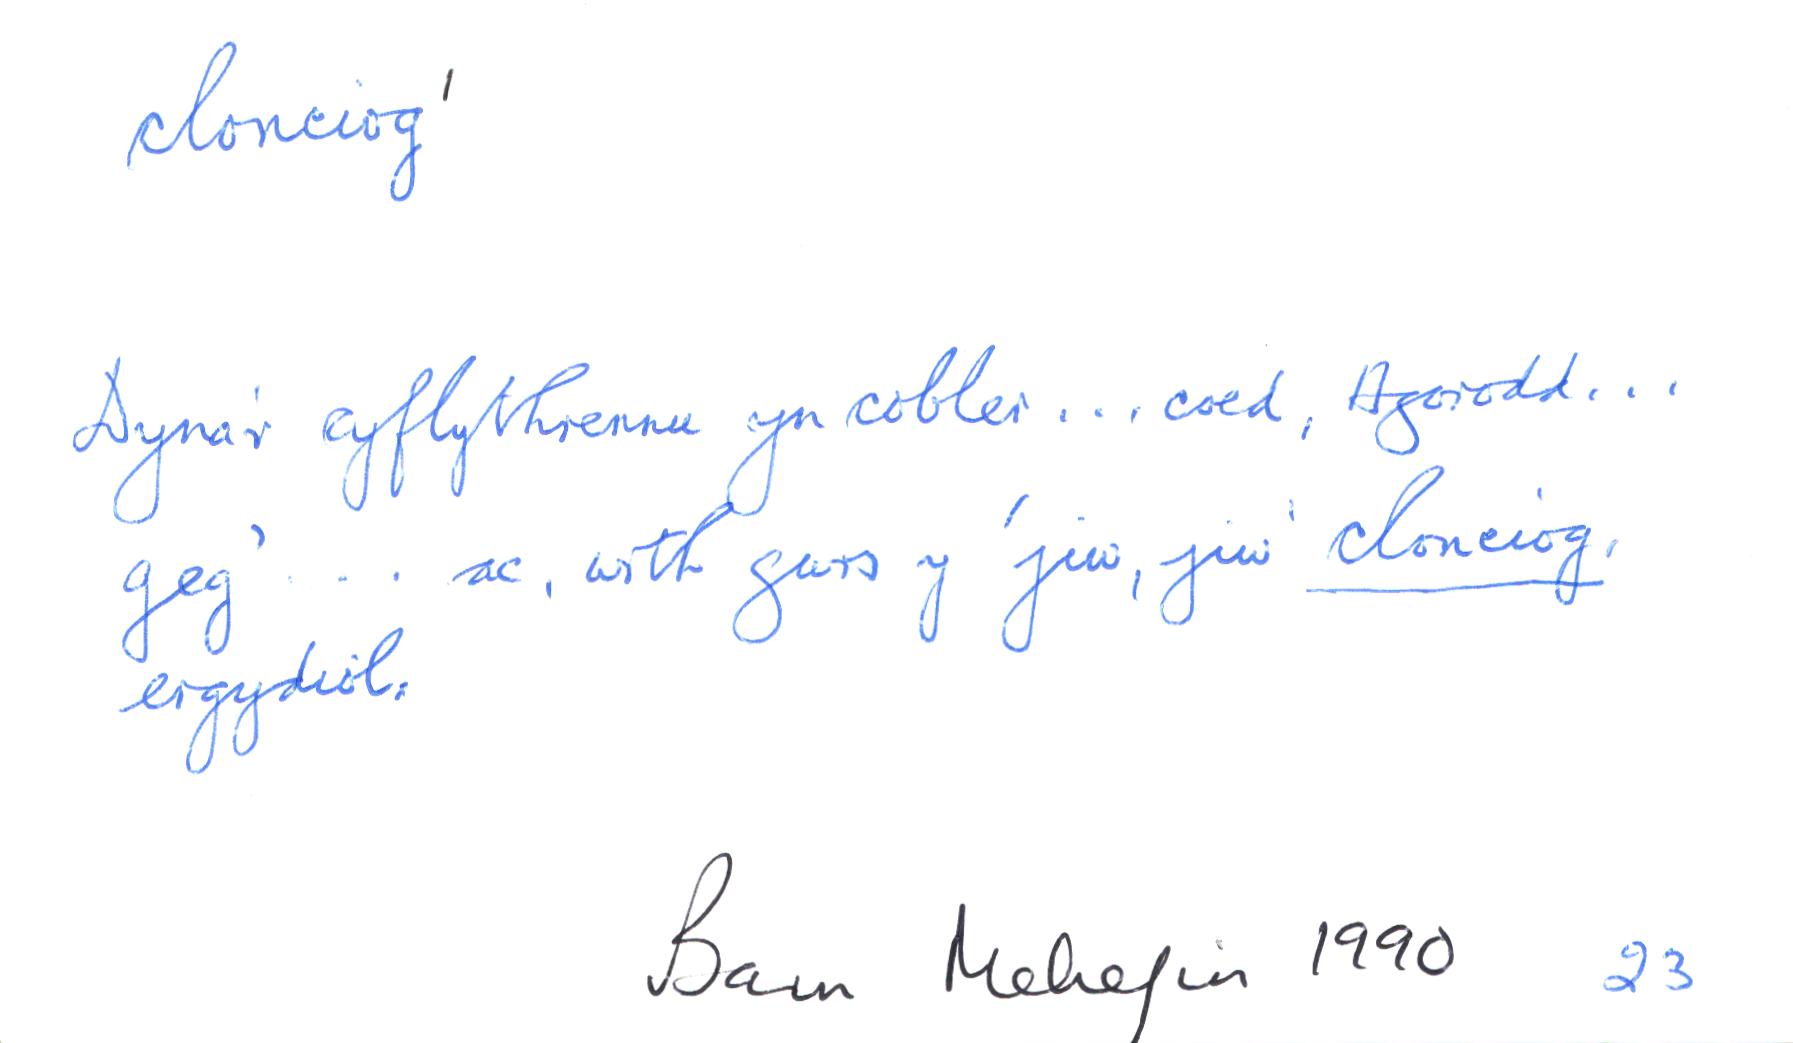 clonciog¹
Dyna'r cyflythrennu yn cobler... coed, Agorodd...
geg' .... ac, wrth gwrs y 'jiw, jiw' clonciog,
ergydiol.
Barn Mehefin 1990 23